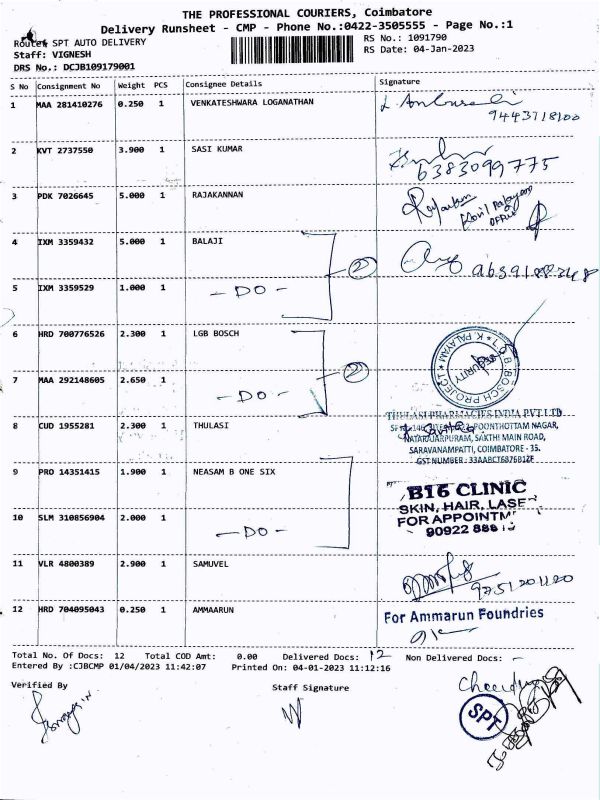 THE PROFESSIONAL COURIERS, Coimbatore
Delivery Runsheet - CMP - Phone No.:0422-3505555 - Page No.:1
Route: SPT AUTO DELIVERY
RS No.: 1091790
Staff: VIGNESH
RS Date: 04-Jan-2023
DRS No.: DCJB109179001
S No Consignment No Weight PCS Consignee Details Signature
1 MAA 281410276 0.250 1 VENKATESHWARA LOGANATHAN
9443718100
2 KVT 2737550 3.900 1 SASI KUMAR
6383099775
3 PDK 7026645 5.000 1 RAJAKANNAN
OFFICE
4 IXM 3359432 5.000 1 BALAJI
2
5 IXM 3359529 1.000 1 - DO -
6 HRD 700776526 2.300 1 LGB BOSCH
2
BOSCH PROJECT * K. PALAYAM *
SECURITY
7 MAA 292148605 2.650 1 - DO -
THULASI PHARMACIES INDIA PVT LTD
8 CUD 1955281 2.300 1 THULASI
POONTHOTTAM NAGAR,
NATARAJARPURAM, SAKTHI MAIN ROAD,
SARAVANAMPATTI, COIMBATORE - 35.
GST NUMBER : 33AABCT6876B1ZF
9 PRO 14351415 1.900 1 NEASAM B ONE SIX
B16 CLINIC
SKIN, HAIR, LASE
FOR APPOINTM
10 SLM 310856904 2.000 1 - DO -
90922 886
11 VLR 4800389 2.900 1 SAMUVEL
9751201120
12 HRD 704095043 0.250 1 AMMAARUN
For Ammarun Foundries
Total No. Of Docs: 12 Total COD Amt: 0.00 Delivered Docs: 12 Non Delivered Docs: -
Entered By :CJBCMP 01/04/2023 11:42:07 Printed On: 04-01-2023 11:12:16
Verified By
Staff Signature
SPT